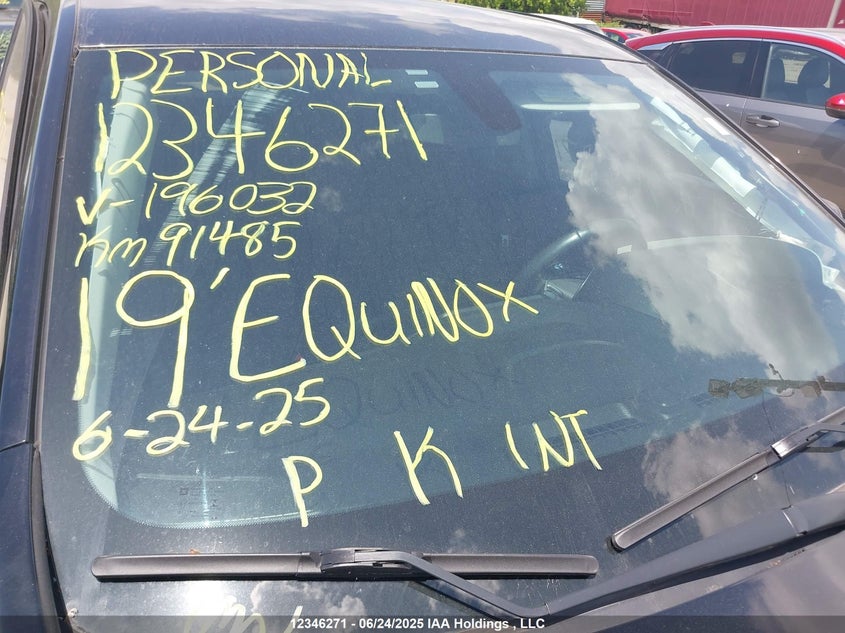 PERSONAL
12346271
V-196032
Km 91485
19' EQUINOX
6-24-25
P K INT
12346271 - 06/24/2025 IAA Holdings , LLC